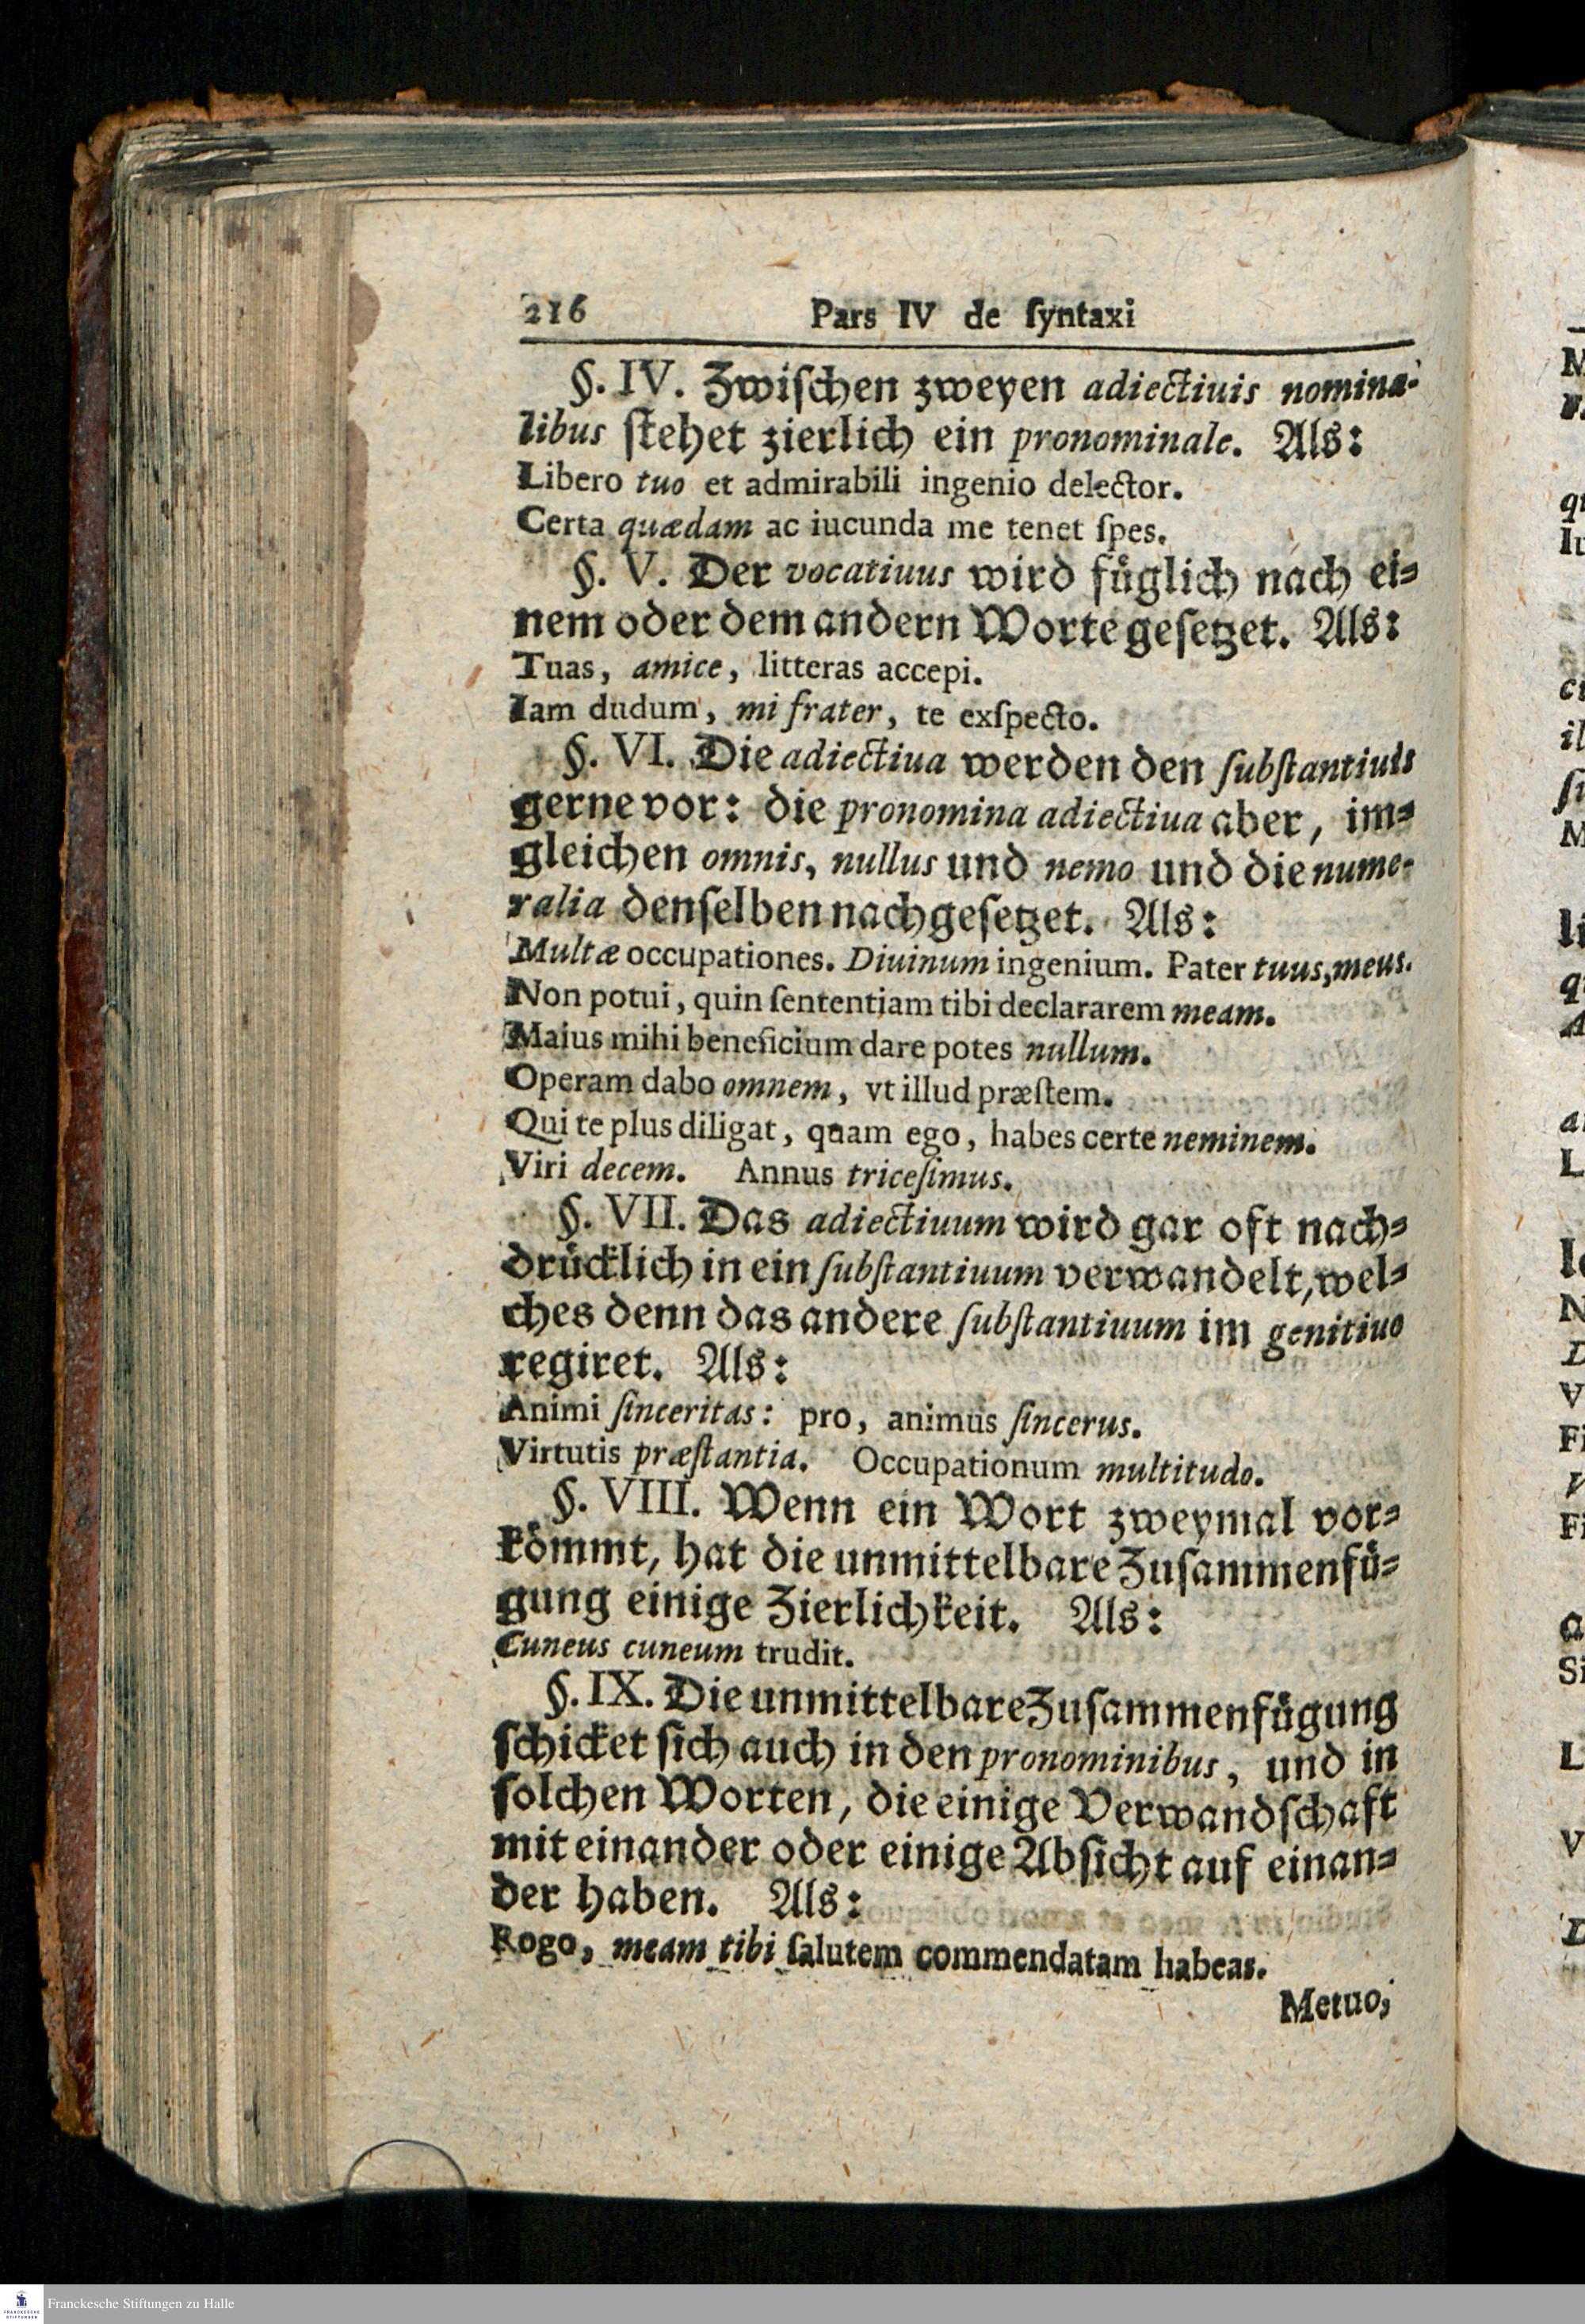 216 Pars IV de ſyntaxi
§. IV. Zwiſchen zweyen adiectiuis nomina-
libus ſtehet zierlich ein pronominale. Als:
Libero tuo et admirabili ingenio delector.
Certa quædam ac iucunda me tenet ſpes.
§. V. Der vocatiuus wird fuͤglich nach ei⸗
nem oder dem andern Worte geſetzet. Als:
Tuas, amice, litteras accepi.
Iam dudum, mi frater, te exſpecto.
§. VI. Die adiectiua werden den ſubſtantiuis
gerne vor: die pronomina adiectiua aber, im⸗
gleichen omnis, nullus und nemo und die nume-
ralia denſelben nachgeſetzet. Als:
Multæ occupationes. Diuinum ingenium. Pater tuus, meus.
Non potui, quin ſententiam tibi declararem meam.
Maius mihi beneficium dare potes nullum.
Operam dabo omnem, vt illud præſtem.
Qui te plus diligat, quam ego, habes certe neminem.
Viri decem. Annus triceſimus.
§. VII. Das adiectiuum wird gar oft nach⸗
druͤcklich in ein ſubſtantiuum verwandelt, wel⸗
ches denn das andere ſubſtantiuum im genitiuo
regiret. Als:
Animi ſinceritas: pro, animus ſincerus.
Virtutis præſtantia. Occupationum multitudo.
§. VIII. Wenn ein Wort zweymal vor⸗
koͤmmt, hat die unmittelbare Zuſammenfuͤ⸗
gung einige Zierlichkeit. Als:
Cuneus cuneum trudit.
§. IX. Die unmittelbare Zuſammenfuͤgung
ſchicket ſich auch in den pronominibus, und in
ſolchen Worten, die einige Verwandſchaft
mit einander oder einige Abſicht auf einan⸗
der haben. Als:
Rogo, meam tibi ſalutem commendatam habeas.
Metuo,
Franckesche Stiftungen zu Halle